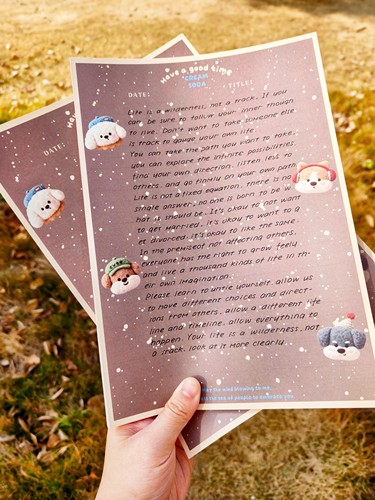 Have a good time
CREAM
SODA
DATE:
TITLE:
Life is a wilderness, not a track. If you
can be sure to follow your inner though
to live. Don't want to take someone else
is track to gauge your own life.
You can take the path you want to take.
you can explore the infinite possibilities.
find your own direction. listen less to
others. and go firmly on your own path
Life is not a fixed equation, there is no
single answer, no one is born to be w
hat it should be. It's okay to not want
to get married, it's okay to want to g
et divorced. it's okay to like the same
In the premise of not affecting others.
everyone has the right to grow feely
and live a thousand kinds of life in th-
eir own imagination.
Please learn to untie yourself. allow us
to have different choices and direct-
ions from others. allow a different life
line and timeline. allow everything to
happen. Your life is a wilderness, not
a track. look at it More clearly.
the wind blowing to me.
of people to
DATE: